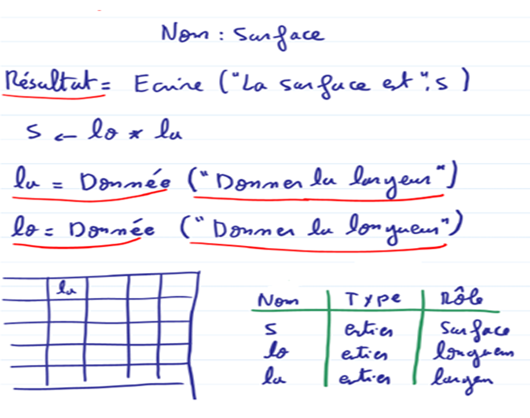 Nom : Surface
Résultat = Ecrire ("La surface est", s)
s ← lo * la
la = Donnée ("Donner la largeur")
lo = Donnée ("Donner la longueur")
la
Nom Type Rôle
s entier Surface
lo entier longueur
la entier largeur